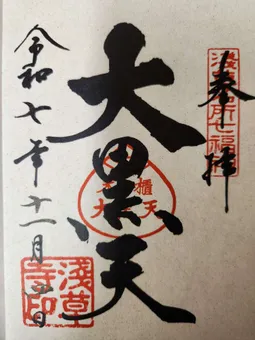 奉拝
浅草名所七福神
大黒天
櫃
大
天
令和七年十一月
日
浅草寺印